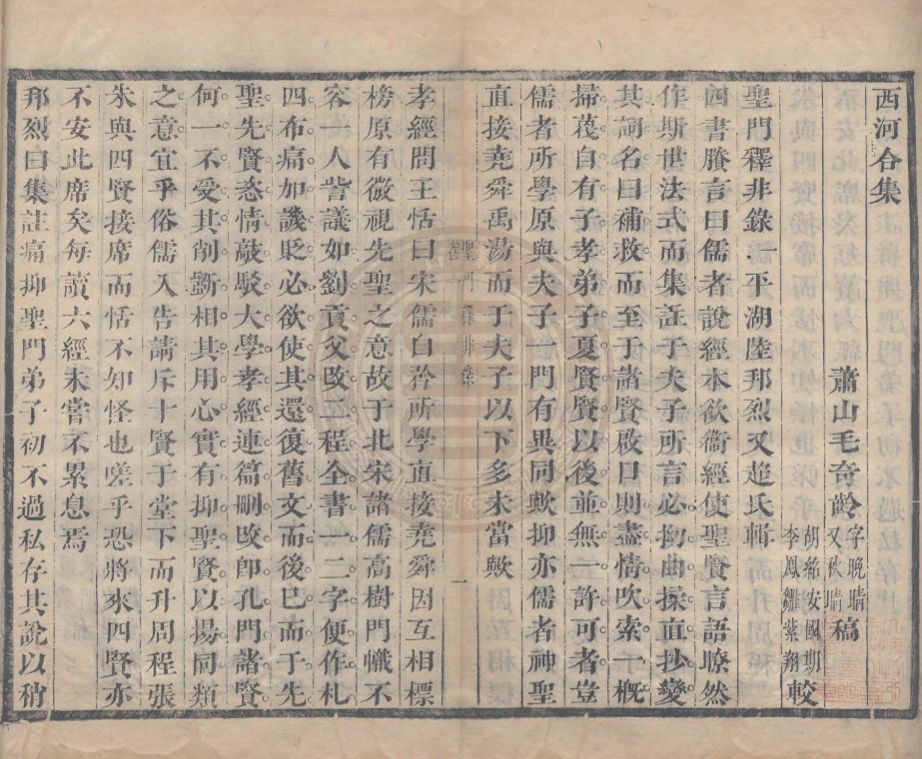 西河合集
蕭山毛奇齡字晚晴又秋晴稿
胡紹安國期李鳳雛紫翔較
聖門釋非錄一平湖陸邦烈又超氏輯
四書賸言曰儒者說經本欲衞經使聖賢言語瞭然
作斯世法式而集註于夫子所言必抝曲揉直抄變
其詞名曰補救而至于諸賢啟口則盡情吹索一槪
掃茂自有子孝弟子夏賢賢以後並無一許可者豈
儒者所學原與夫子一門有異同歟抑亦儒者神聖
直接堯舜禹湯而于夫子以下多未當歟
聖門釋非錄
卷一
一
孝經問王恬曰宋儒自矜所學直接堯舜因互相標
榜原有微視先聖之意故于北宋諸儒高樹門幟不
容一人訾議如劉貢父改二程全書一二字便作札
四布痛加譏貶必欲使其還復舊文而後已而于先
聖先賢恣情敲駁大學孝經連篇刪改卽孔門諸賢
何一不受其削斵相其用心實有抑聖賢以揚同類
之意宜乎俗儒入告請斥十賢于堂下而升周程張
朱與四賢接席而恬不知怪也嗟乎恐將來四賢亦
不安此席矣每讀六經未嘗不累息焉
邦烈曰集註痛抑聖門弟子初不過私存其說以稍